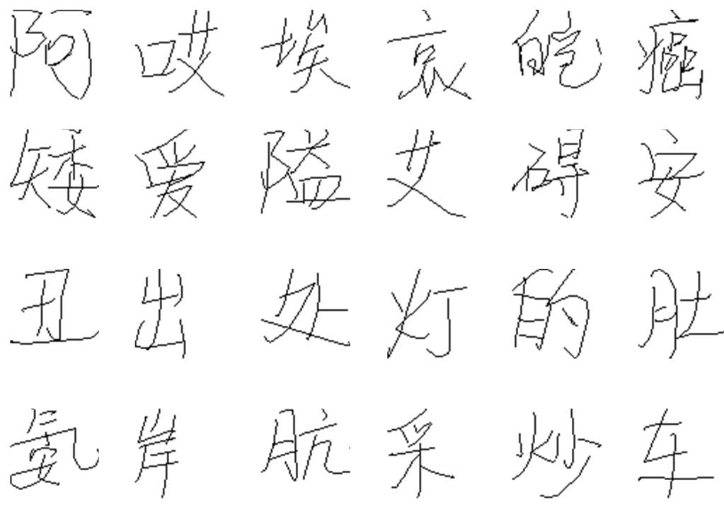 阿哎埃哀皑癌
矮爱隘艾碍安
丑出处灯的肚
氨岸肮采炒车